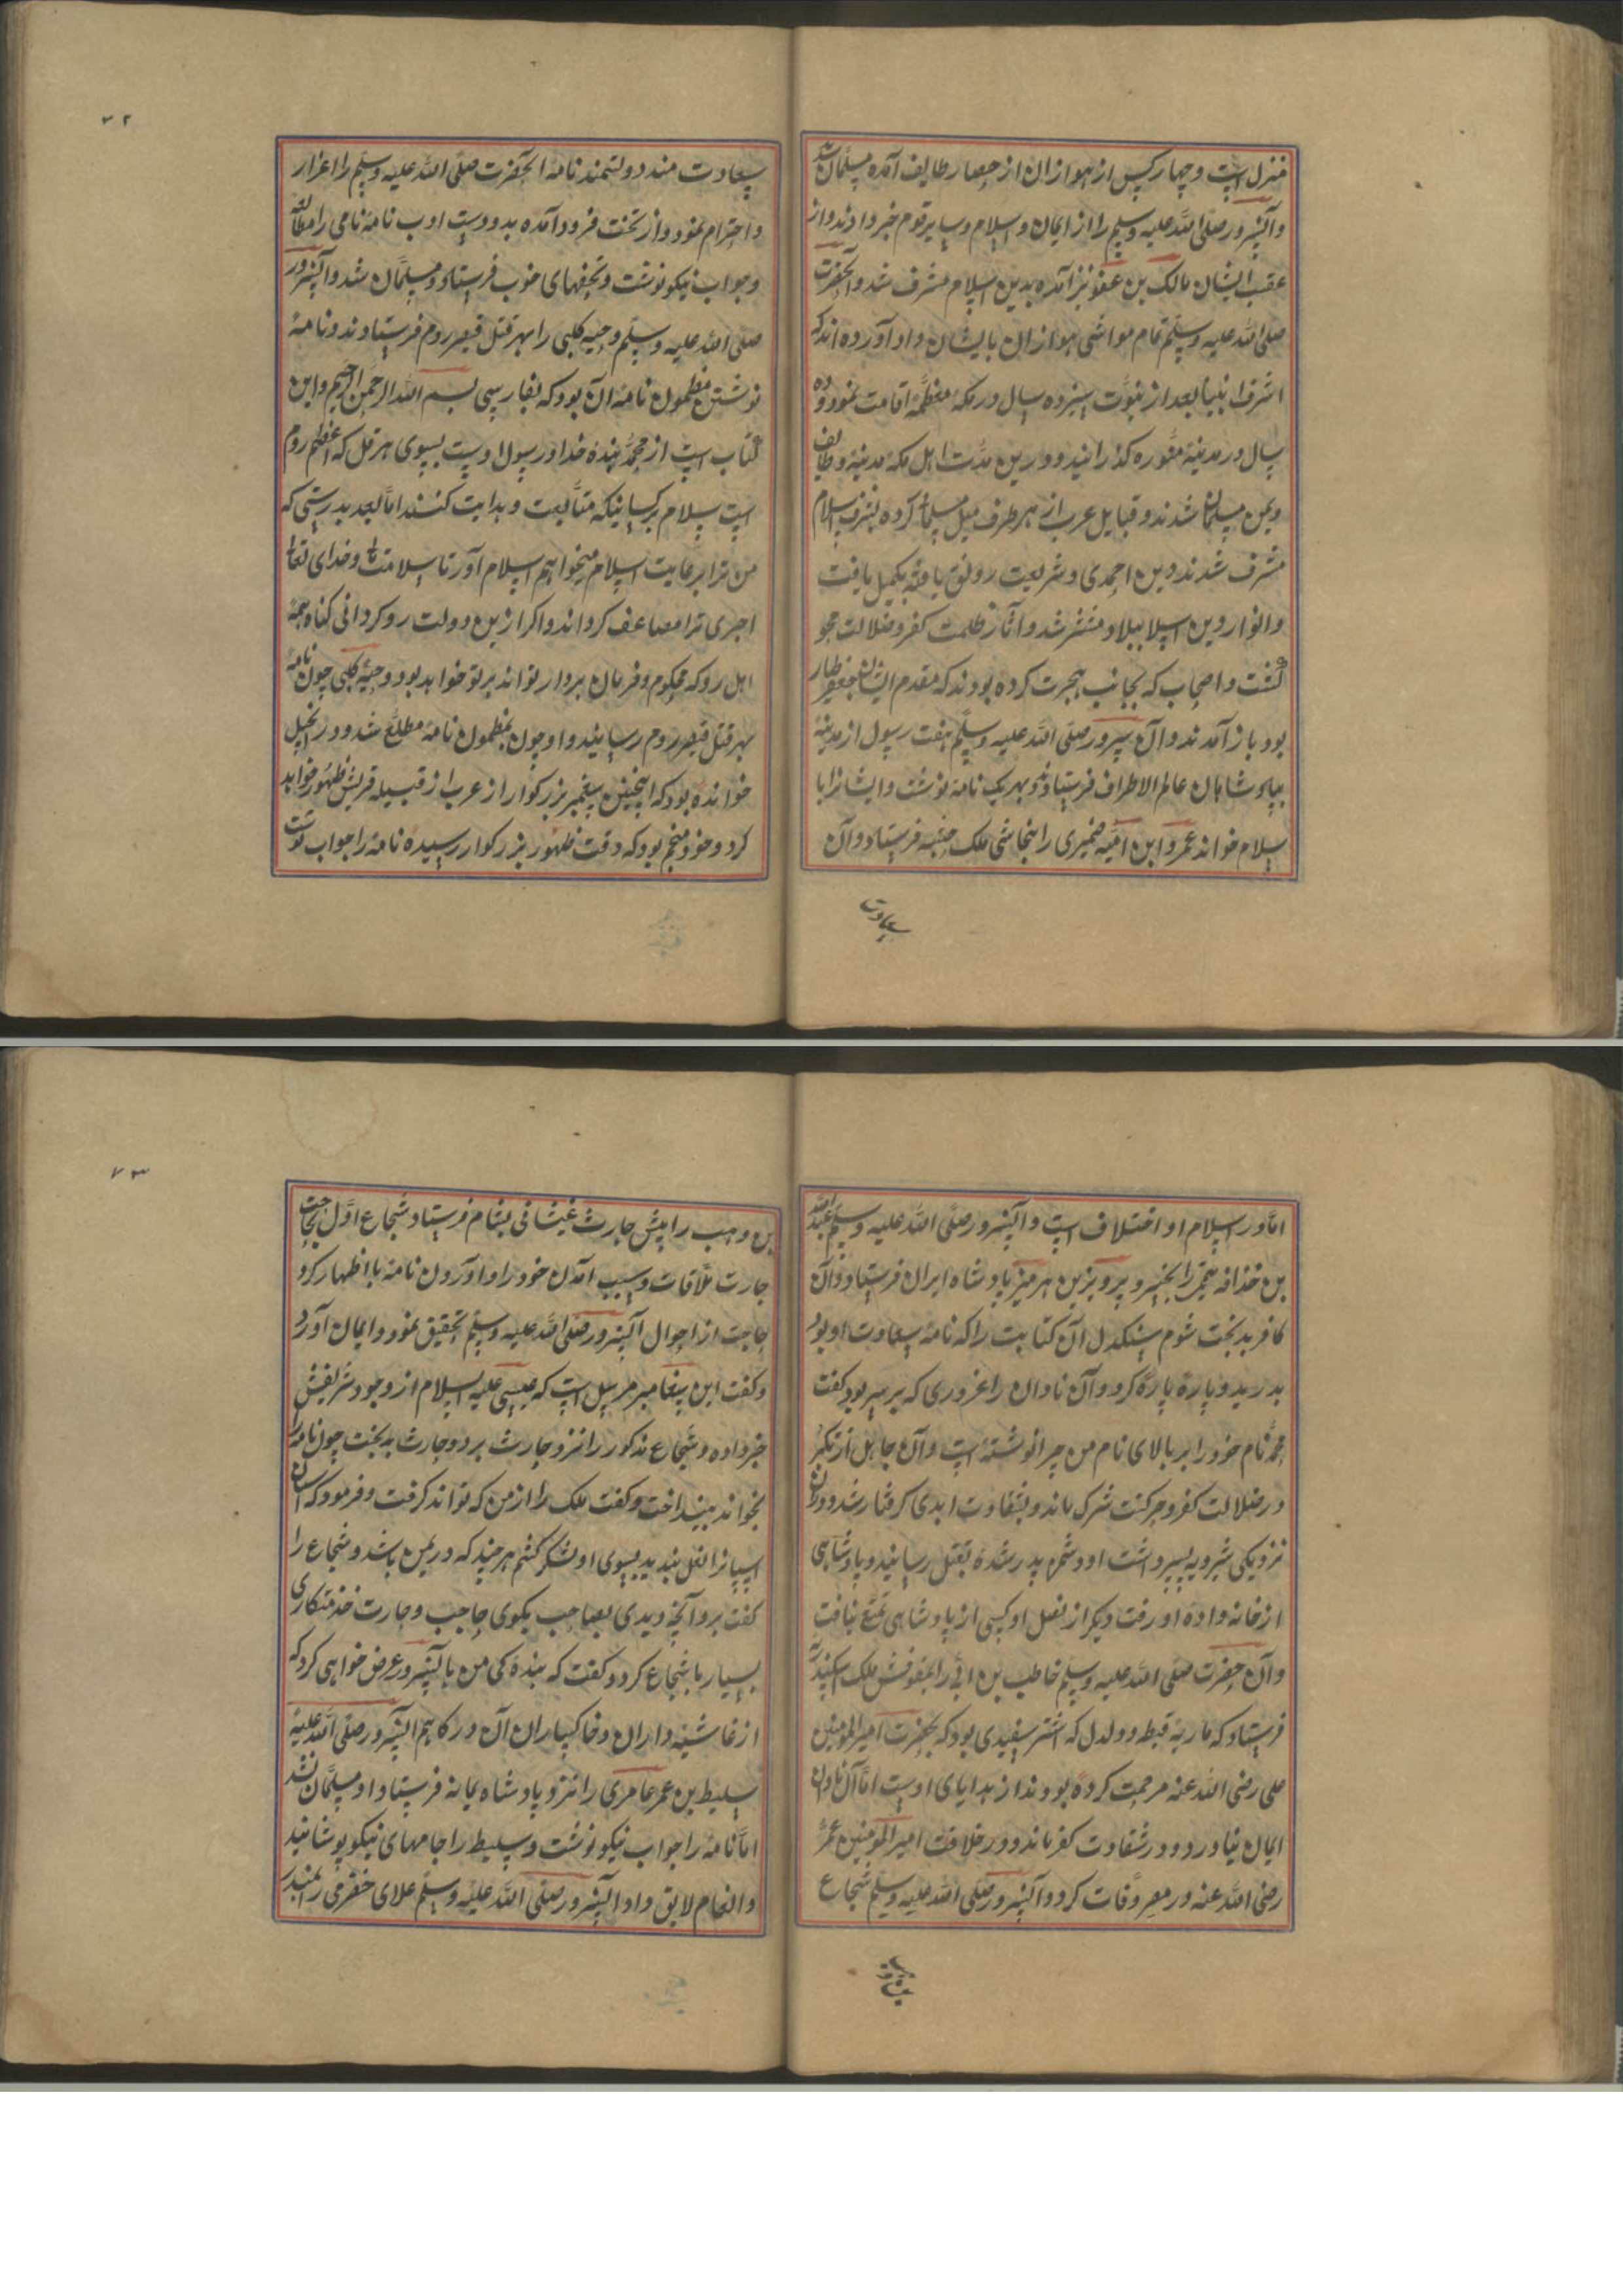 منزل است و چهار کس از هوازان از حصار طایف آمده مسلمان شد
وآنسرور صلی الله علیه وسلم را از ایمان و اسلام و سایر قوم خبر دادند و از
عقب ایشان مالک بن عفو نیز آمده بدین اسلام مشرف شد و آنحضرت
صلی الله علیه وسلم تمام مواشی هوازان بایشان داد آورده اند که
اشرف انبیا بعد از نبوت سیزده سال در مکهٔ معظمه اقامت نمود و ده
سال در مدینهٔ منوره کذرانید و درین مدت اهل مکه مدینه و طایف
و یمن مسلمان شدند و قبایل عرب از هر طرف میل مسلمانی کرده بشرف اسلام
مشرف شدند دین احمدی و شریعت رونق یافته بکمیل یافت
و انوار دین اسلا ببلاد منتشر شد و آثار ظلمت کفر و ضلالت محو
گشت و اصحاب که بجانب هجرت کرده بودند که مقدم ایشان جعفر طیار
بود باز آمدند و آن سرور صلی الله علیه وسلم هفت رسول از مدینهٔ
بپادشاهان عالم الاطراف فرستادند و بهر یک نامه نوشت و ایشانرا با
سلام خواند عمرو ابن امیه ضمیری را بنجاشی ملک حبشه فرستاد و آن
سعادت
۷۲
سعادت مند دولتمند نامهٔ آنحضرت صلی الله علیه وسلم را اعزار
و احترام نمود و از تخت فرود آمده بدو دست ادب نامهٔ نامی را مطالعه
و جواب نیکو نوشت و تحفهای خوب فرستاد و مسلمان شد و آنسرور
صلی الله علیه وسلم و حیه کلبی را بهر قتل قیصر روم فرستادند و نامهٔ
نوشتن مظمون نامه آن بود که بفارسی بسم الله الرحمن الرحیم و این
کتاب است از محمد بندهٔ خدا و رسول اوست بسوی هرقل که اعظم روم
است سلام بر کسانیکه متابعت و هدایت کنند اما بعد بدرستی که
من ترا برعایت اسلام میخواهم اسلام آور تا سلامت و خدای تعا
اجری ترا مضاعف کرداند و اکر ازین دولت روکردانی کناه همه
اهل روکه محکوم و فرمان بردار تواند بر تو خواهد بود و حیهٔ کلبی چون نامهٔ
بهرقتل قیصر روم رسانید و او چون بمظمون نامه مطلع شد و در انجیل
خوانده بود که اینچنین پیغمبر بزرکوار از عرب از قبیله قریش ظهور خواهد
کرد و خود منجم بود که وقت ظهور بزرکوار رسیده نامه را جواب نوشت
اما در اسلام او اختلاف است و آنسرور صلی الله علیه وسلم عبد الله
بن خذافه را بخسرو پرویز بن هرمیز پادشاه ایران فرستاد و آن
کافر بدبخت شوم سنکدل آن کتابت را که نامهٔ سعادت او بود
بدرید و پاره پاره کرد و آن نادان را غروری که بر سر بود کفت
محمد نام خود را بر بالای نام من چرا نوشته است و آن جاهل از تکبر
در ضلالت کفر و حرکت شرک ماند و بشقاوت ابدی کرفتار شد و دران
نزدیکی شرویه پسر داشت او دشمن پدر شده بقتل رسانید و پادشاهی
از خانه واده او رفت دیکر از نصل او کسی از پادشاهی تمتع نیافت
وآن حضرت صلی الله علیه وسلم خاطب بن ابی را بمقوقش ملک سکندریه
فرستاد که ماریه قبطه و دلدل که اشتر سفیدی بود که بحضرت امیر المومنین
علی رضی الله عنه مرحمت کرده بودند از هدایای اوست اما آن نادان
ایمان نیاورد و در شقاوت کفر ماند و در خلافت امیر المومنین عمر
رضی الله عنه در مصر وفات کرد و آنسرور صلی الله علیه وسلم شجاع
بن وهب
۷۳
بن وهب را پیش حارث غیثانی بشام فرستاد شجاع اول بحاجت
حارت ملاقات و سبب آمدن خود را و آوردن نامه با اظهار کرد
حاجت از احوال آنسرور صلی الله علیه وسلم تحقیق نمود و ایمان آورد
و کفت این پیغامبر مرسل است که عیسی علیه السلام از وجود شریفش
خبر داده و شجاع مذکور را نزد حارث برد و حارث بدبخت چون نامه را
بخواند بینداخت و کفت ملک را از من که تواند کرفت و فرمود که اسبان
اسپانرا نعل بندید بسوی او لشکر کشم هر چند که در یمن باشد و شجاع را
کفت برو آنچه دیدی بصاحب بکوی حاجب و حارت خذمتکاری
بسیار با شجاع کرد و کفت که بندهٔ کی من بآنسرور عرض خواهی کرد که
از غاشیه داران و خاکساران آن درکاهم آنسرور صلی الله علیه
سلیط بن عمر عامری را نزد پادشاه یمانه فرستاد او مسلمان نشد
اما نامه را جواب نیکو نوشت و سلیط را جامهای نیکو پوشانید
و انعام لایق داد آنسرور صلی الله علیه وسلم علای حضرمی را بمنذر